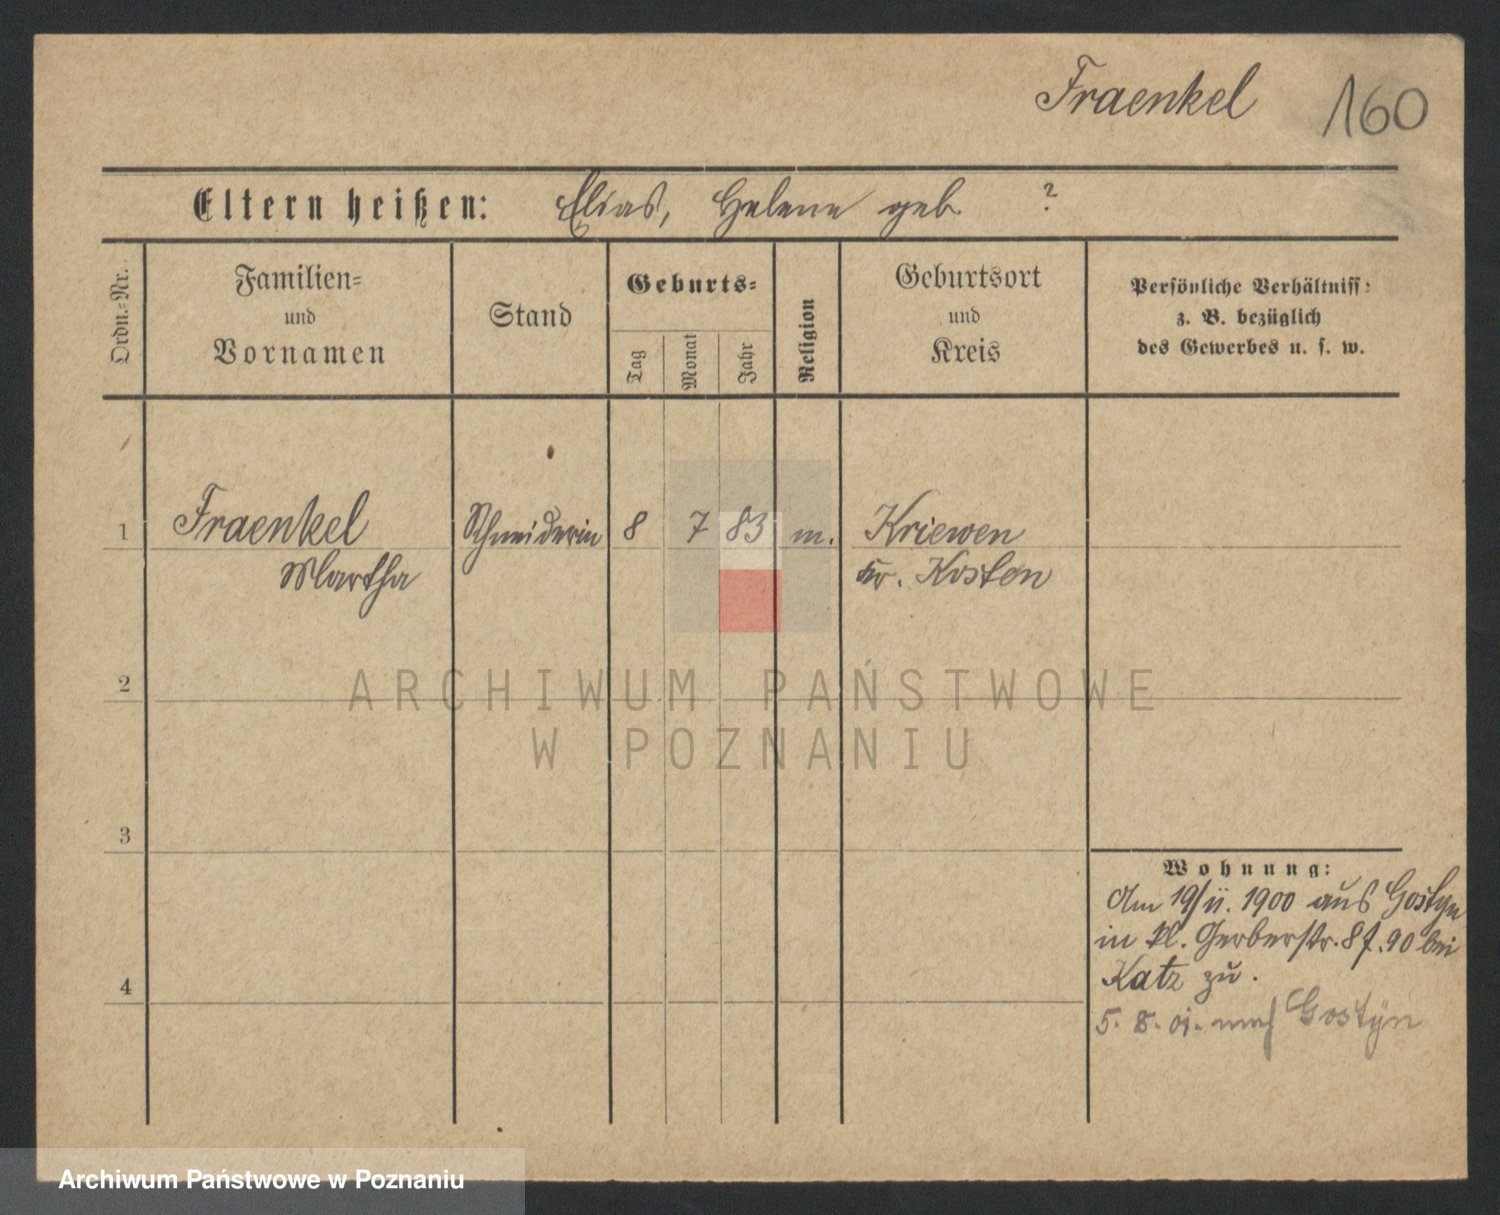 Fraenkel 160
Eltern heißen: Elias, Helene geb ?
Ordn.-Nr.
Familien-
und
Vornamen
Stand
Geburts-
Tag
Monat
Jahr
Religion
Geburtsort
und
Kreis
Persönliche Verhältniss:
z. B. bezüglich
des Gewerbes u. s. w.
1 Fraenkel Schneiderin 8 7 83 m. Kriewen
Martha Kr. Kosten
2
ARCHIWUM PAŃSTWOWE
W POZNANIU
3
4
Wohnung:
Am 19/11. 1900 aus Gostyn
in Kl. Gerberstr. 8 f. 90 bei
Katz zu.
5. 8. 01. nach Gostyn
Archiwum Państwowe w Poznaniu